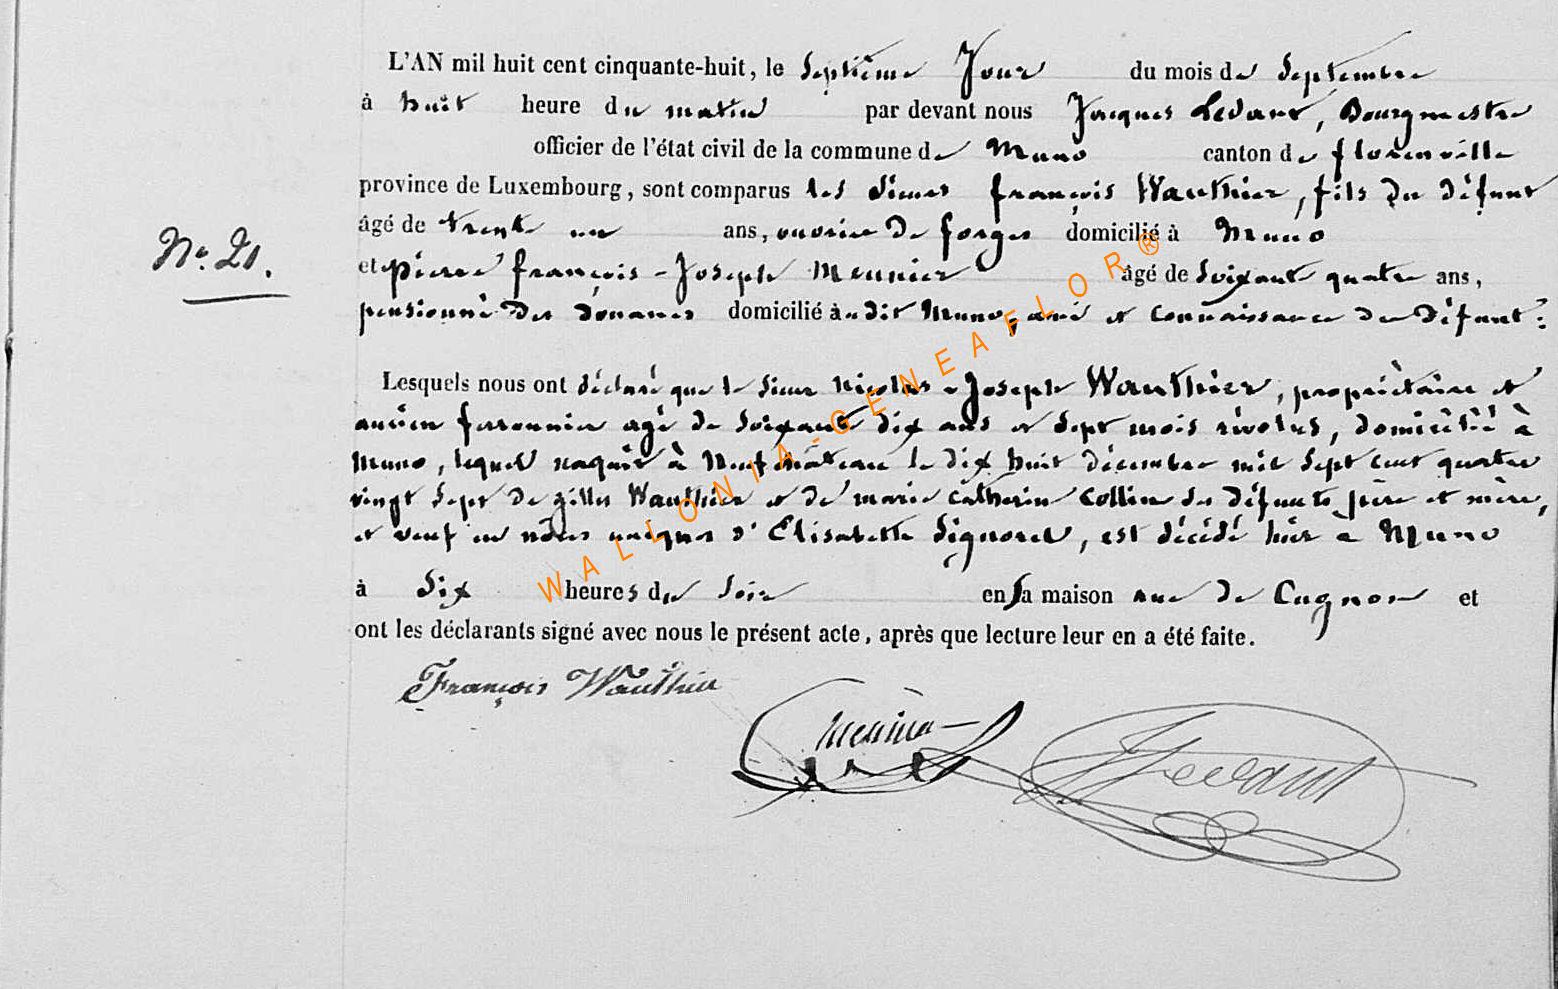 L'AN mil huit cent cinquante-huit, le septième Jour du mois de Septembre
à huit heure du matin par devant nous Jacques Levaux, Bourgmestre
officier de l'état civil de la commune de Muno canton de florenville
province de Luxembourg, sont comparus les Sieurs françois Wauthier, fils du défunt
âgé de trente un ans, ouvrier de forges domicilié à Muno
N° 21.
et pierre françois-Joseph Meunier âgé de soixante quatre ans,
pensionné des douanes domicilié audit Muno, ami et connaissance du défunt:
Lesquels nous ont déclaré que le Sieur Nicolas-Joseph Wauthier, propriétaire et
ancien ferronnier agé de soixante dix ans et sept mois révolus, domicilié à
Muno, lequel naquit à Neufchâteau le dix huit décembre mil sept cent quatre
vingt sept de gilles Wauthier et de marie Catherine Collin ses défunts père et mère,
et veuf en nôces uniques d'Elisabeth Signorel, est décédé hier à Muno
à six heures du soir en sa maison rue de Cugnon et
ont les déclarants signé avec nous le présent acte, après que lecture leur en a été faite.
François Wauthier
Meunier
J Levaux
WALLONIA-GENEAFLOR®